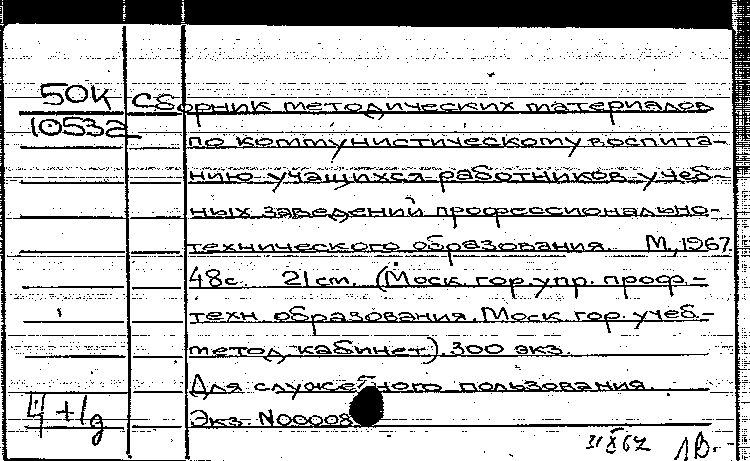 50К Сборник методических материалов
10532 по коммунистическому воспита-
нию учащихся работников учеб-
ных заведений профессионально-
технического образования. М, 1967.
48с. 21ст. (Моск. гор. упр. проф.-
техн. образования. Моск. гор. учеб.-
метод кабинет). 300 экз.
Для служебного пользования.
4+1д Экз. N00008
31 X 67 ЛВ.-